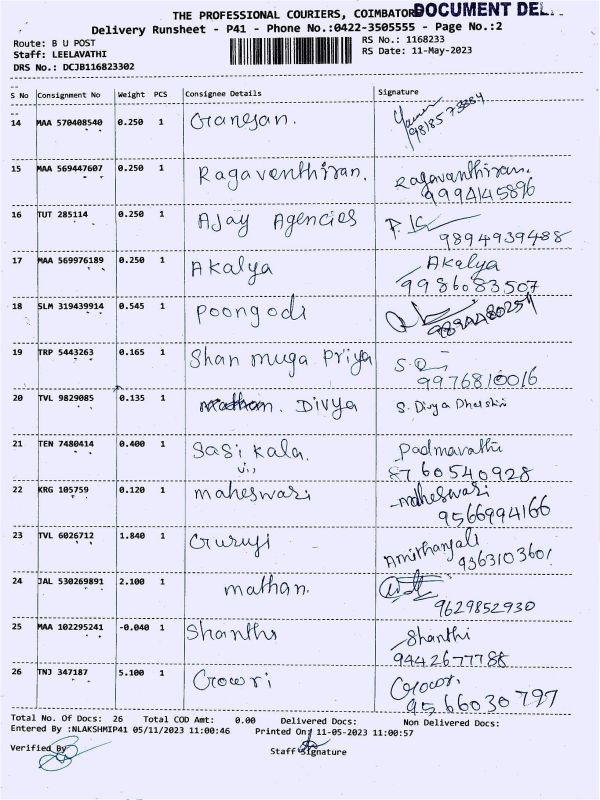 DOCUMENT DEL
THE PROFESSIONAL COURIERS, COIMBATORE
Delivery Runsheet - P41 - Phone No.:0422-3505555 - Page No.:2
Route: B U POST RS No.: 1168233
Staff: LEELAVATHI RS Date: 11-May-2023
DRS No.: DCJB116823302
S No Consignment No Weight PCS Consignee Details Signature
14 MAA 570408540 0.250 1 Ganesan.
15 MAA 569447607 0.250 1 Ragaventhiran. Ragavanthiran.
9994145896
16 TUT 285114 0.250 1 Ajay Agencies
9894939488
17 MAA 569976189 0.250 1 Akalya Akalya
9986083507
18 SLM 319439914 0.545 1 Poongodi
19 TRP 5443263 0.165 1 Shan muga Priya
9976810016
20 TVL 9829085 0.135 1 Divya S. Divya Dharshini
21 TEN 7480414 0.400 1 Sasi kala. Padmavathi
8760540928
22 KRG 105759 0.120 1 maheswari maheswari
9566994166
23 TVL 6026712 1.840 1 Guruji Amirthanjali
9363103601
24 JAL 530269891 2.100 1 mathan.
9629852930
25 MAA 102295241 -0.040 1 Shanthi Shanthi
9442677788
26 TNJ 347187 5.100 1 Gowri Gowri
9566030797
Total No. Of Docs: 26 Total COD Amt: 0.00 Delivered Docs: Non Delivered Docs:
Entered By :NLAKSHMIP41 05/11/2023 11:00:46 Printed On: 11-05-2023 11:00:57
Verified By Staff Signature